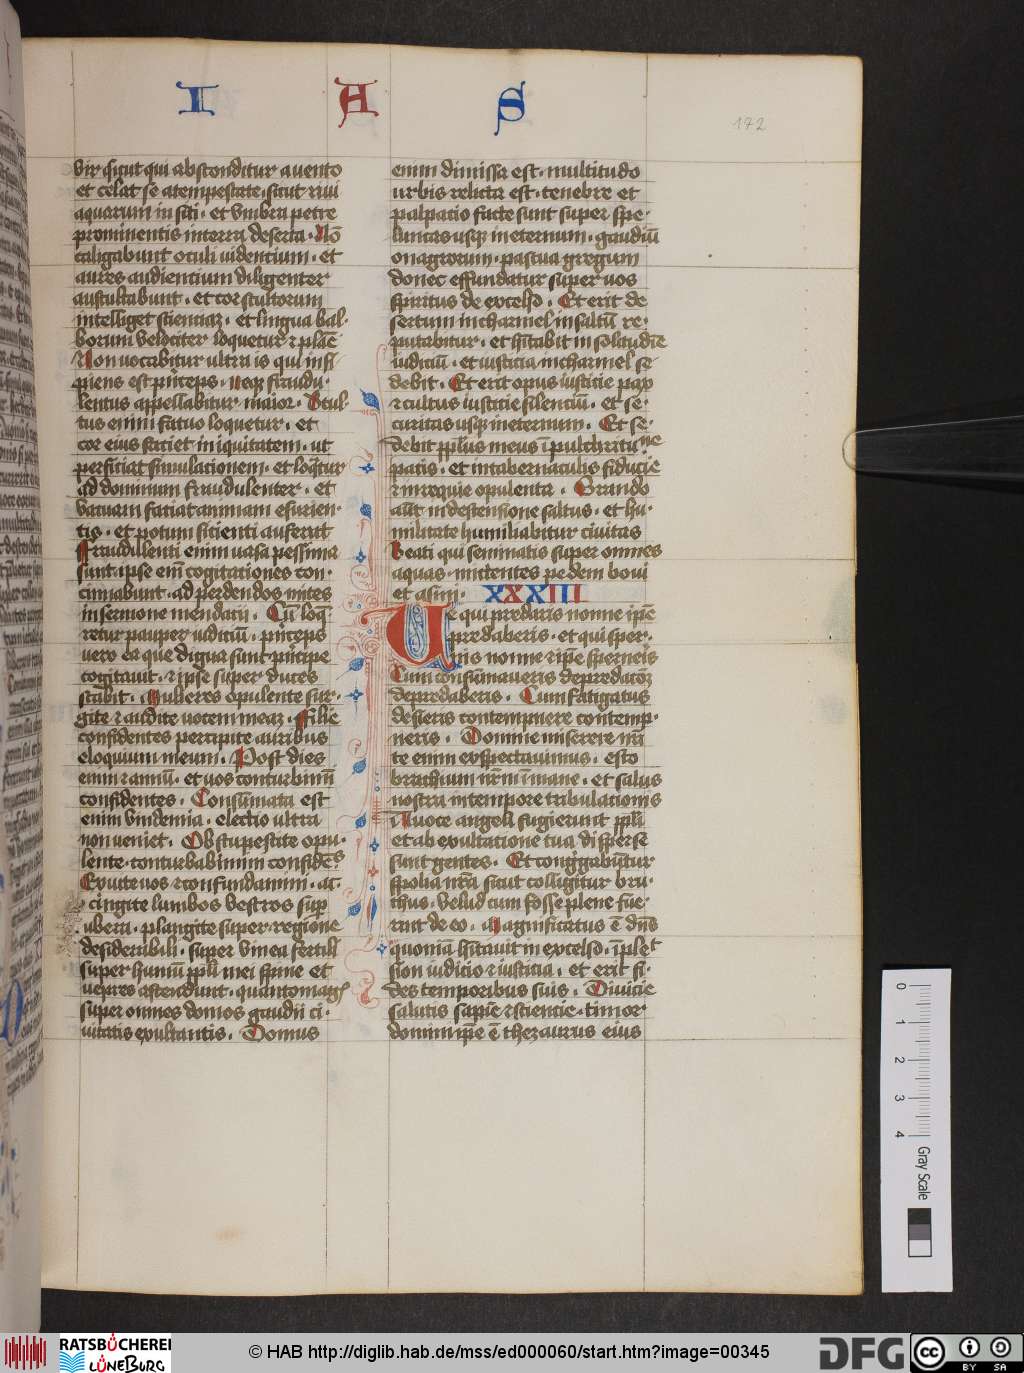 I A S
172
vir sicut qui absconditur a vento
et celat se a tempestate. sicut rivi
aquarum in siti. et umbra petre
prominentis in terra deserta. Nō
caligabunt oculi uidentium. et
aures audientium diligenter
auscultabunt. et cor stultorum
intelliget scientiaʒ. et lingua bal-
borum velociter loquetur ⁊ planē
Non vocabitur ultra is qui insi-
piens est prīceps. neqʒ fraudu-
lentus appellabitur maior. Stul-
tus enim fatuo loquetur. et
cor eius faciet iniquitatem. ut
perficiat simulationem. et loq̄tur
ad dominum fraudulenter. et
vacuam faciat animam esurien-
tis. et potum sicienti auferat
Fraudillenti enim uasa pessima
sunt. ipse em̄ cogitationes con-
cinnabunt. ad perdendos mites
in sermone mendacij. Cū loq̄-
retur pauper iudiciū. princeps
vero ea que digna sunt principe
cogitauit. ⁊ ipse super duces
stabit. Mulieres opulente sur-
gite ⁊ audite vocem meaʒ. Filie
confidentes percipite auribus
eloquium meum. Post dies
enim ⁊ annū. et uos conturbīm̄
confidentes. Consūmata est
enim vindemia. electio ultra
non veniet. Obstupescite opu-
lente. conturbabimini confidēs
Exuite uos ⁊ confundamini. ac-
cingite lumbos vestros sup̄
ubera. plangite super regione
desiderabili. super vinea fertili
super humū pp̄li mei spine et
uepres ascendunt. quantomagꝭ
super omnes domos gaudii ci-
uitatis exultantis. Domus
enim dimissa est. multitudo
urbis relicta est. tenebre et
palpatio facte sunt super spe-
luncas usqʒ in eternum. gaudiū
onagrorum. pascua gregum
donec effundatur super uos
spiritus de excelso. Et erit de-
sertum in charmel in saltū re-
putabitur. et hītabit in solitudīe
iudiciū. et iusticia in charmel se-
debit. Et erit opus iusticie pax
⁊ cultus iusticie silenciū. et se-
curitas usqʒ in eternum. Et se-
debit pp̄lus meus ī pulchritudine
pacis. et in tabernaculis fiducie
⁊ in requie opulenta. Grando
aūt in descensione saltus. et hu-
militate humiliabitur civitas
Beati qui seminatis super omnes
aquas. mittentes pedem bovi
et asini. XXXIII
Ve qui predaris nonne ip̄e
predaberis. et qui sper-
nis nonne ⁊ ip̄e sperneris
Cum consūmaveris depredacōʒ
depredaberis. Cum fatigatus
desieris contempnere contemp-
neris. Domine miserere nr̄i
te enim exspectauimus. esto
brachium nr̄m ī mane. et salus
nostra in tempore tribulationis
A uoce angeli fugierunt pp̄li
et ab exultatione tua disperse
sunt gentes. Et cong̅gabūtur
spolia nr̄a sicut colligitur bru-
chus. velud cum fosse plene fue-
rint de eo. Magnificatus ē dn̄s
quoniā hītavit in excelso. īplet
sion iudicio ⁊ iusticia. et erit fi-
des temporibus suis. Divicie
salutis sapīe ⁊ scientie. timor
domini ip̄e ē thezaurus eius
0 1 2 3 4
Gray Scale
RATSBÜCHEREI LÜNEBURG
© HAB http://diglib.hab.de/mss/ed000060/start.htm?image=00345
DFG
cc BY SA